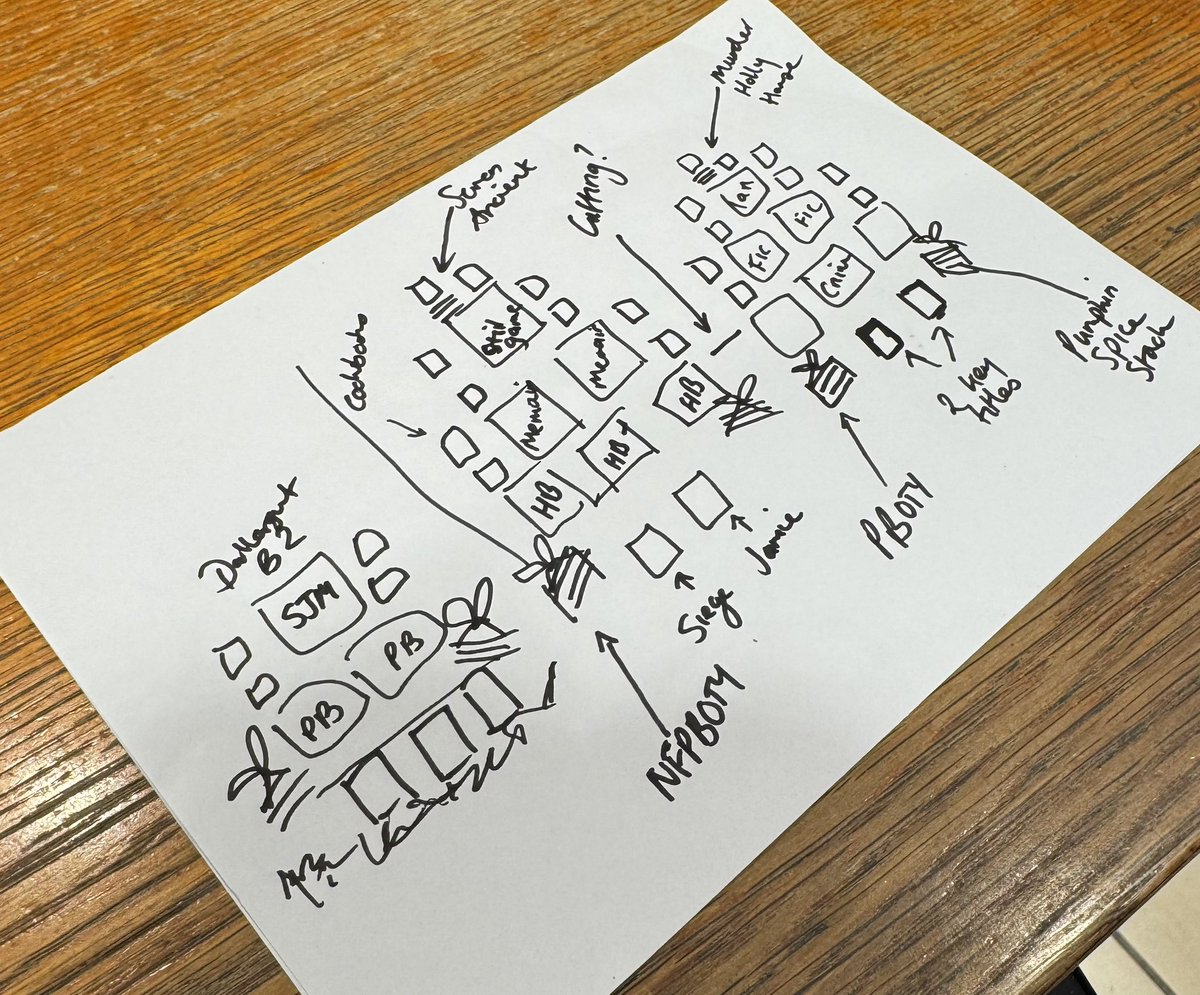 Murder
Holly
House
Series
Ancient
Cookbooks
Still
game
Memoir
Memoir
HB
HB
HB
Fic
Fic
Crime
Pumpkin
Spice
Stack
2 key
titles
PBOTY
Jamie
Siege
NFPBOTY
B2
SJM
PB
PB